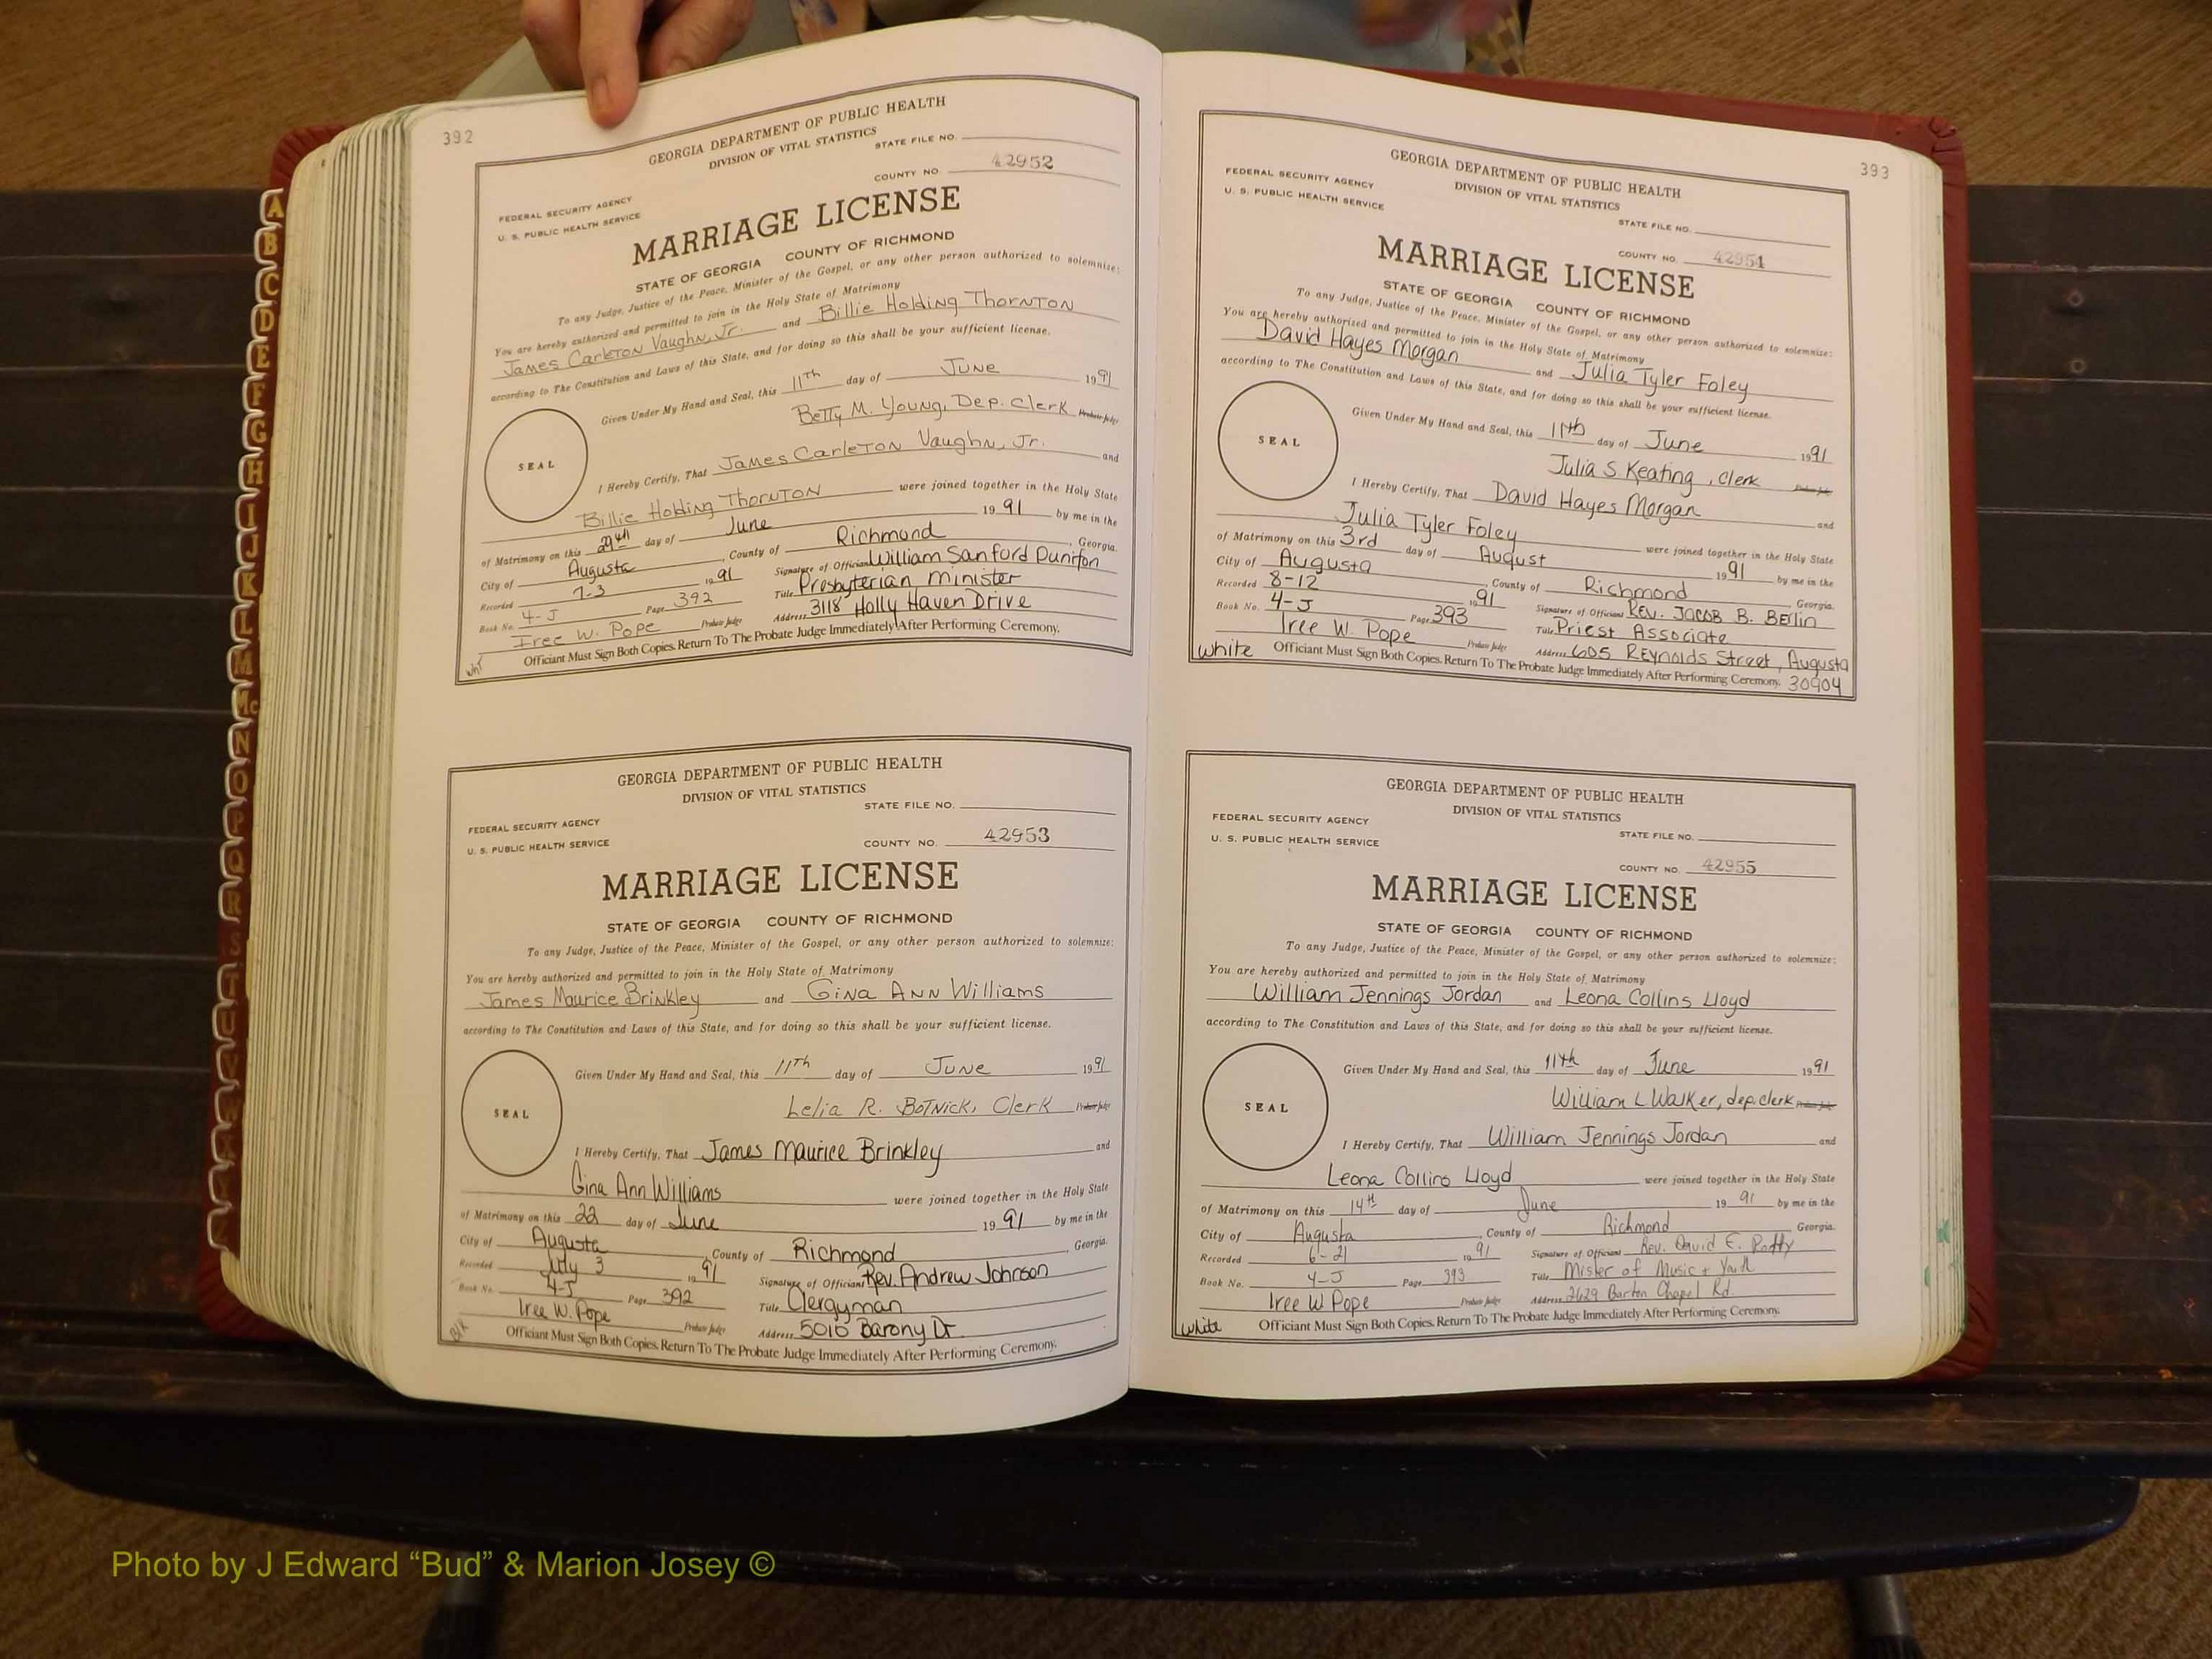 392
GEORGIA DEPARTMENT OF PUBLIC HEALTH
DIVISION OF VITAL STATISTICS
STATE FILE NO.
COUNTY NO. 42952
FEDERAL SECURITY AGENCY
U. S. PUBLIC HEALTH SERVICE
MARRIAGE LICENSE
STATE OF GEORGIA COUNTY OF RICHMOND
To any Judge, Justice of the Peace, Minister of the Gospel, or any other person authorized to solemnize:
You are hereby authorized and permitted to join in the Holy State of Matrimony
James Carleton Vaughn, Jr. and Billie Holding Thornton
according to The Constitution and Laws of this State, and for doing so this shall be your sufficient license.
Given Under My Hand and Seal, this 11th day of June 1991
Betty M. Young, Dep. Clerk Probate Judge
SEAL
I Hereby Certify, That James Carleton Vaughn, Jr. and
Billie Holding Thornton were joined together in the Holy State
of Matrimony on this 29th day of June 1991 by me in the
City of Augusta, County of Richmond, Georgia.
Recorded 7-3 1991 Signature of Official William Sanford
Book No. 4-J Page 392 Title Presbyterian Minister
Iree W. Pope Probate Judge Address 3118 Holly Haven Drive
Officiant Must Sign Both Copies. Return To The Probate Judge Immediately After Performing Ceremony.
Wht
GEORGIA DEPARTMENT OF PUBLIC HEALTH
DIVISION OF VITAL STATISTICS
STATE FILE NO.
FEDERAL SECURITY AGENCY
U. S. PUBLIC HEALTH SERVICE
COUNTY NO. 42953
MARRIAGE LICENSE
STATE OF GEORGIA COUNTY OF RICHMOND
To any Judge, Justice of the Peace, Minister of the Gospel, or any other person authorized to solemnize:
You are hereby authorized and permitted to join in the Holy State of Matrimony
James Maurice Brinkley and Gina Ann Williams
according to The Constitution and Laws of this State, and for doing so this shall be your sufficient license.
Given Under My Hand and Seal, this 11th day of June 1991
Lelia R. Botnick, Clerk Probate Judge
SEAL
I Hereby Certify, That James Maurice Brinkley and
Gina Ann Williams were joined together in the Holy State
of Matrimony on this 22 day of June 1991 by me in the
City of Augusta, County of Richmond, Georgia.
Recorded July 3 1991 Signature of Official Rev. Andrew Johnson
Book No. 4-J Page 392 Title Clergyman
Iree W. Pope Probate Judge Address 5016 Barony Dr
Officiant Must Sign Both Copies. Return To The Probate Judge Immediately After Performing Ceremony.
Blk
393
GEORGIA DEPARTMENT OF PUBLIC HEALTH
DIVISION OF VITAL STATISTICS
FEDERAL SECURITY AGENCY
U. S. PUBLIC HEALTH SERVICE
STATE FILE NO.
COUNTY NO. 42954
MARRIAGE LICENSE
STATE OF GEORGIA COUNTY OF RICHMOND
To any Judge, Justice of the Peace, Minister of the Gospel, or any other person authorized to solemnize:
You are hereby authorized and permitted to join in the Holy State of Matrimony
David Hayes Morgan and Julia Tyler Foley
according to The Constitution and Laws of this State, and for doing so this shall be your sufficient license.
Given Under My Hand and Seal, this 11th day of June 1991
Julia S. Keating, Clerk Probate Judge
SEAL
I Hereby Certify, That David Hayes Morgan and
Julia Tyler Foley were joined together in the Holy State
of Matrimony on this 3rd day of August 1991 by me in the
City of Augusta, County of Richmond Georgia.
Recorded 8-12 1991 Signature of Official Rev. Jacob B. Berlin
Book No. 4-J Page 393 Title Priest Associate
Iree W. Pope Probate Judge Address 605 Reynolds Street, Augusta
white Officiant Must Sign Both Copies. Return To The Probate Judge Immediately After Performing Ceremony. 30904
GEORGIA DEPARTMENT OF PUBLIC HEALTH
DIVISION OF VITAL STATISTICS
FEDERAL SECURITY AGENCY
U. S. PUBLIC HEALTH SERVICE
STATE FILE NO.
COUNTY NO. 42955
MARRIAGE LICENSE
STATE OF GEORGIA COUNTY OF RICHMOND
To any Judge, Justice of the Peace, Minister of the Gospel, or any other person authorized to solemnize:
You are hereby authorized and permitted to join in the Holy State of Matrimony
William Jennings Jordan and Leona Collins Lloyd
according to The Constitution and Laws of this State, and for doing so this shall be your sufficient license.
Given Under My Hand and Seal, this 11th day of June 1991
William L Walker, dep. clerk
SEAL
I Hereby Certify, That William Jennings Jordan and
Leona Collins Lloyd were joined together in the Holy State
of Matrimony on this 14th day of June 1991 by me in the
City of Augusta, County of Richmond Georgia.
Recorded 6-21 1991 Signature of Official Rev. David E.
Book No. 4-J Page 393 Title Mister of Music + Youth
Iree W Pope Probate Judge Address 2629 Barton Chapel Rd.
white Officiant Must Sign Both Copies. Return To The Probate Judge Immediately After Performing Ceremony.
A
B
C
D
E
F
G
H
I
J
K
L
M
Mc
N
O
P
Q
R
S
T
U
V
W
Photo by J Edward “Bud” & Marion Josey ©